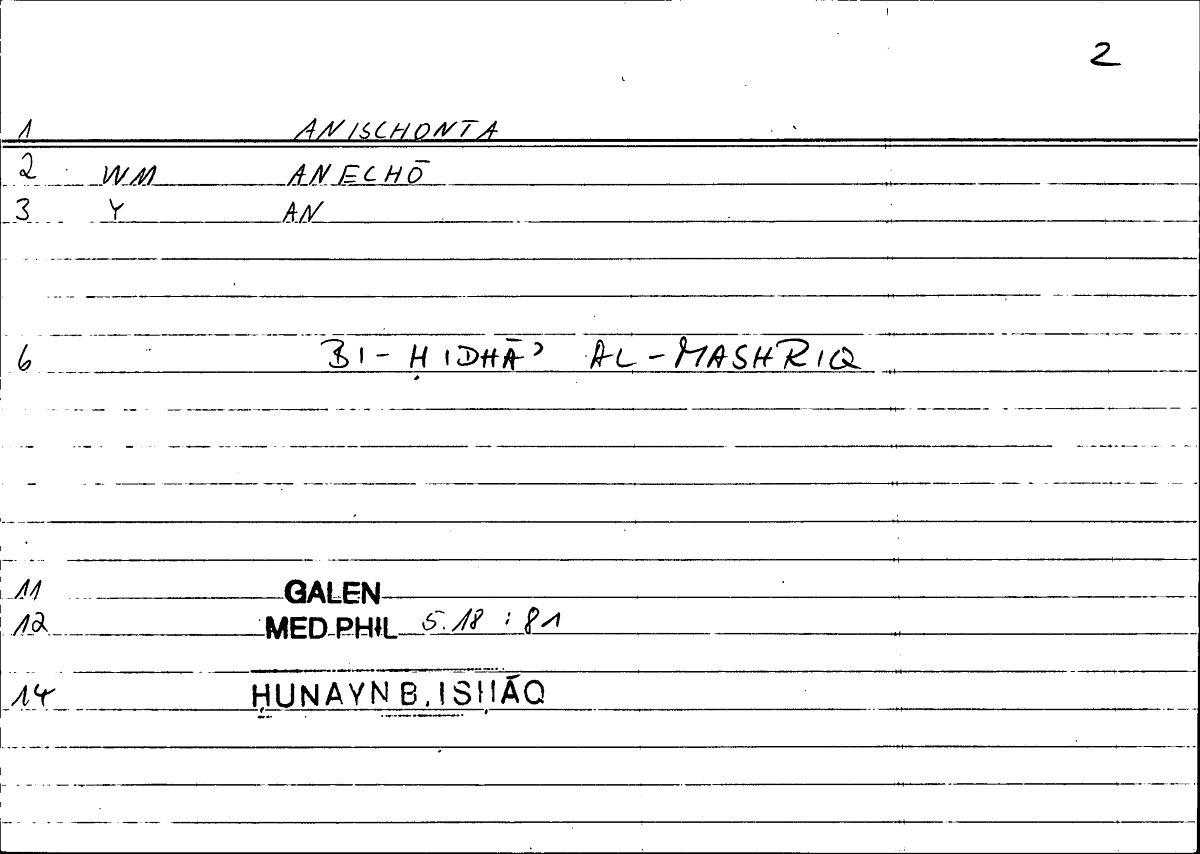 2
1 ANISCHONTA
2 WM ANECHŌ
3 Y AN
6 BI-ḤIDHĀʾ AL-MASHRIQ
11 GALEN
12 MED.PHIL 5.18 : 81
14 ḤUNAYN B. ISḤĀQ